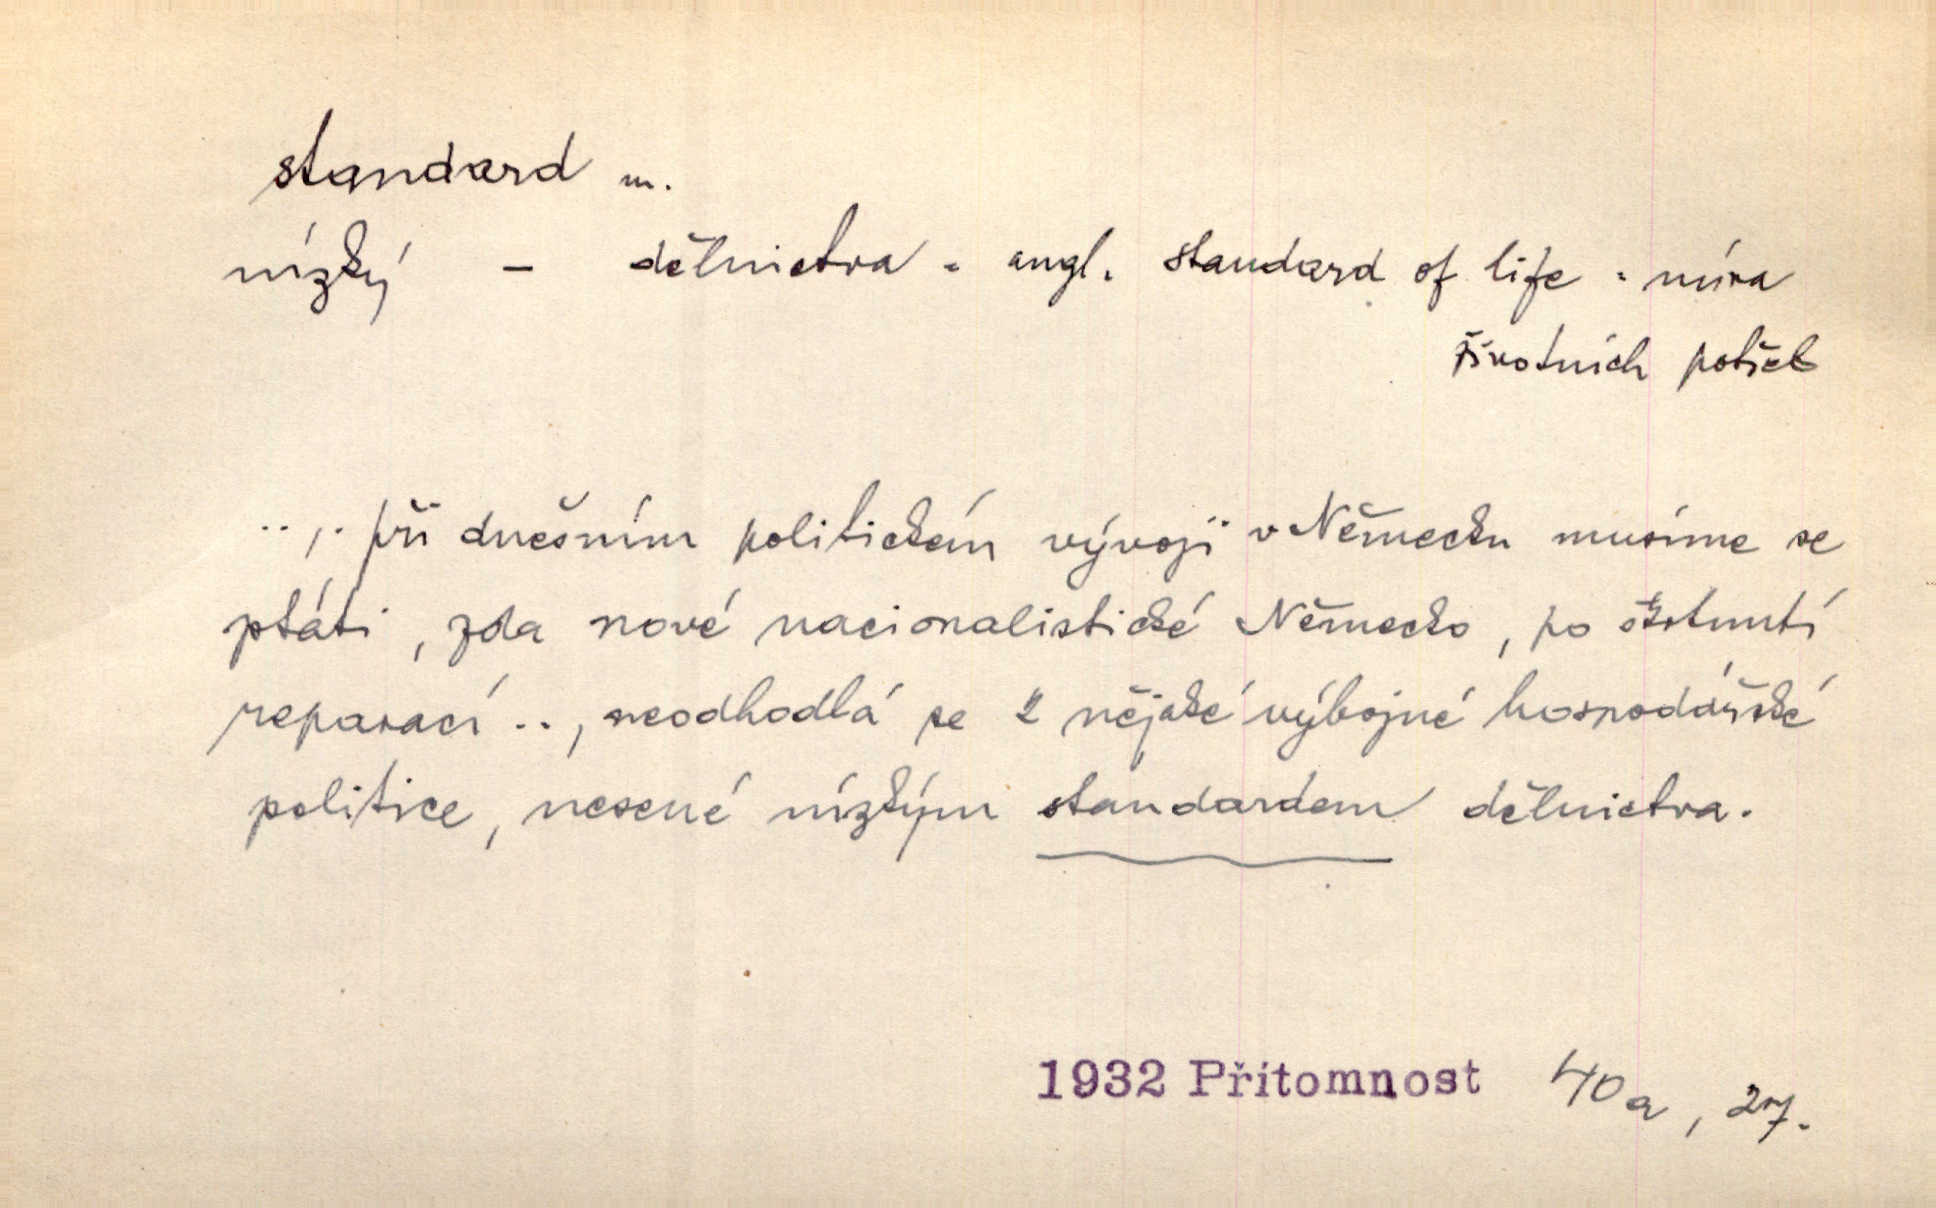 standard m.
nízký – dělnictva = angl. standard of life = míra
životních potřeb
..,. při dnešním politickém vývoji v Německu musíme se
ptáti, zda nové nacionalistické Německo, po škrtnutí
reparací .., neodhodlá se k nějaké výbojné hospodářské
politice, nesené nízkým standardem dělnictva.
1932 Přítomnost 40a, 27.